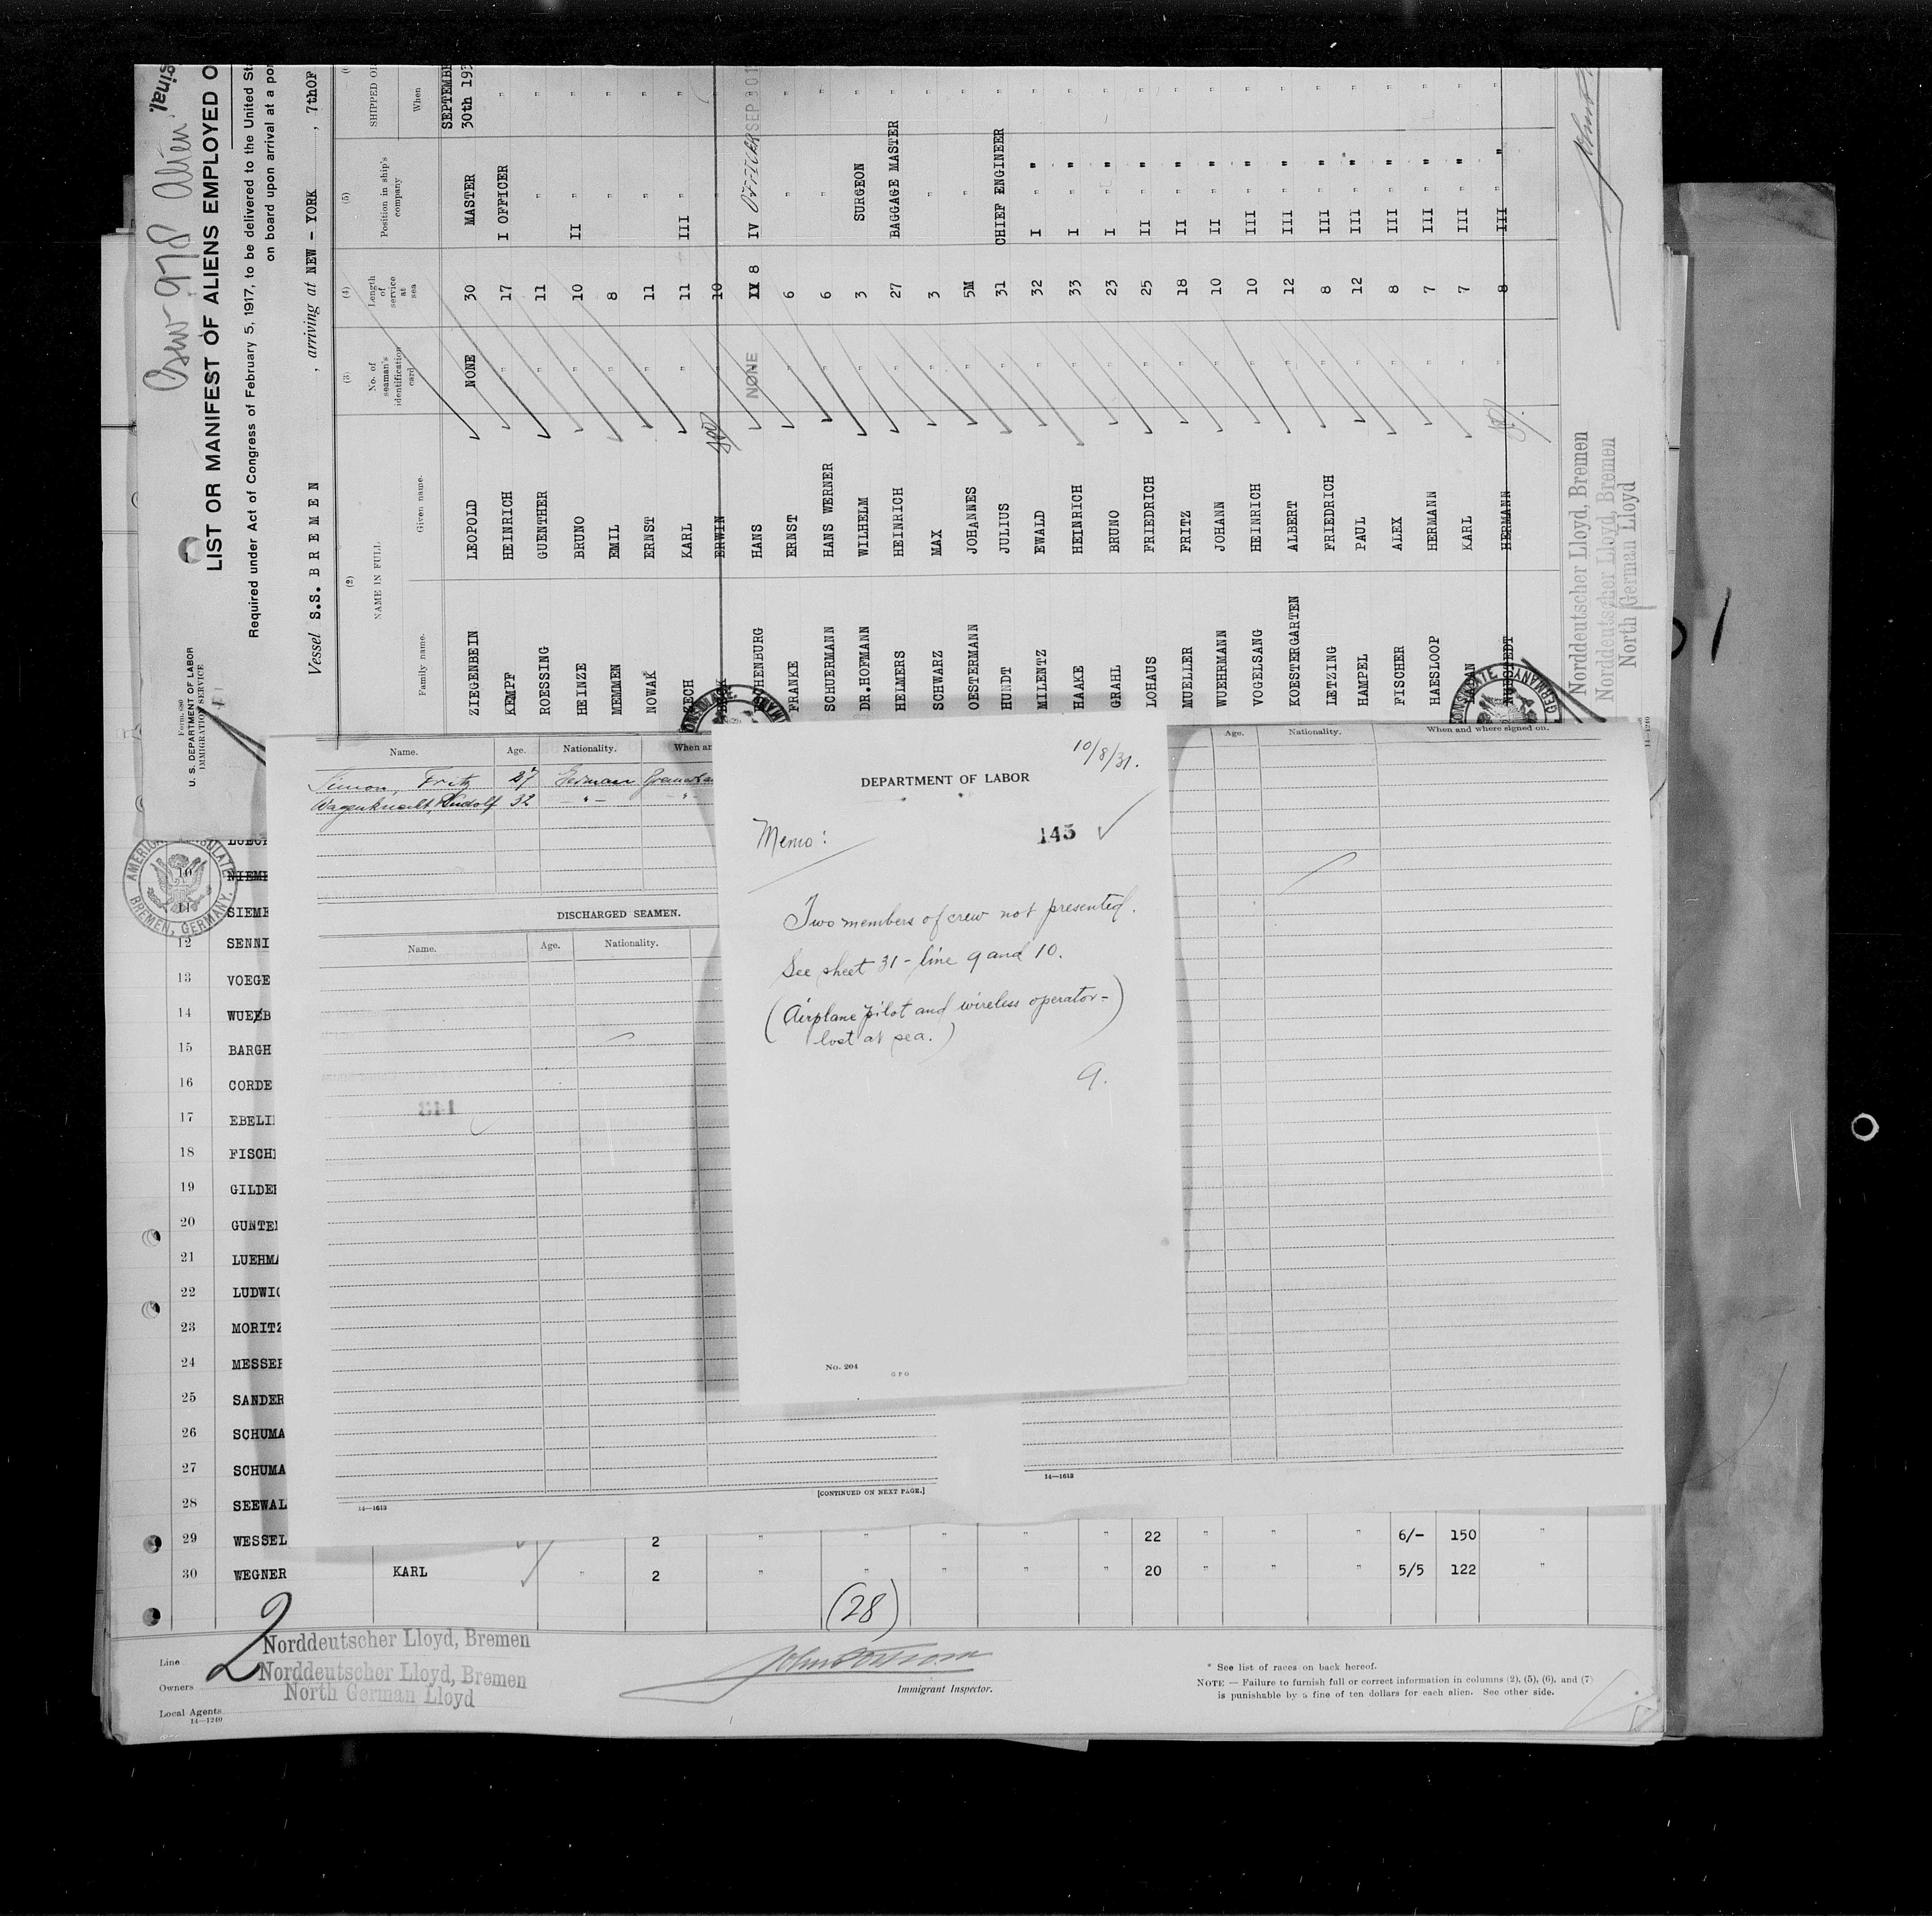 ginal.
Csw 978 Alien
LIST OR MANIFEST OF ALIENS EMPLOYED O
Required under Act of Congress of February 5, 1917, to be delivered to the United St
on board upon arrival at a por
Form 680
U. S. DEPARTMENT OF LABOR
IMMIGRATION SERVICE
Vessel S.S. BREMEN , arriving at NEW-YORK , 7thOF
(2) (3) (4) (5)
NAME IN FULL
Family name. Given name. No. of seaman's identification card Length of service at sea Position in ship's company SHIPPED OR When
SEPTEMBE
ZIEGENBEIN LEOPOLD NONE 30 MASTER 30th 193
KEMPF HEINRICH " 17 I OFFICER "
ROESSING GUENTHER " 11 " "
HEINZE BRUNO " 10 II " "
MEMMEN EMIL " 8 " "
NOWAK ERNST " 11 " "
ECH KARL " 11 III " "
ERWIN " 10
HENBURG HANS NONE IV 8 IV OFFICER SEP 30 1
FRANKE ERNST " 6 " "
SCHUERMANN HANS WERNER " 6 " "
DR.HOFMANN WILHELM " 3 SURGEON "
HELMERS HEINRICH " 27 BAGGAGE MASTER "
SCHWARZ MAX " 3 " "
OESTERMANN JOHANNES " 5M " "
HUNDT JULIUS " 31 CHIEF ENGINEER "
MILENTZ EWALD " 32 I " " "
HAAKE HEINRICH " 33 I " " "
GRAHL BRUNO " 23 I " " "
LOHAUS FRIEDRICH " 25 II " " "
MUELLER FRITZ " 18 II " " "
WUEHRMANN JOHANN " 10 II " " "
VOGELSANG HEINRICH " 10 III " " "
KOESTERGARTEN ALBERT " 12 III " " "
LETZING FRIEDRICH " 8 III " " "
HAMPEL PAUL " 12 III " " "
FISCHER ALEX " 8 III " " "
HAESLOOP HERMANN " 7 III " " "
AN KARL " 7 III " " "
HERMANN " 8 III " " "
Norddeutscher Lloyd, Bremen
Norddeutscher Lloyd, Bremen
North German Lloyd
14—1240
Name. Age. Nationality. When an
Simon, Fritz 27 German
Wagenknecht, Rudolf 32 - " - - " -
DISCHARGED SEAMEN.
Name. Age. Nationality.
14—1613
[CONTINUED ON NEXT PAGE.]
10/8/31.
DEPARTMENT OF LABOR
145
Memo:
Two members of crew not presented.
See sheet 31 - line 9 and 10.
(Airplane pilot and wireless operator-
lost at sea.)
No. 204
GPO
Age. Nationality. When and where signed on.
14—1613
AMERICAN CONSULATE
BREMEN, GERMANY.
10 NIEME
11 SIEME
12 SENNI
13 VOEGE
14 WUEB
15 BARGH
16 CORDE
17 EBELI
18 FISCH
19 GILDE
20 GUNTE
21 LUEHMA
22 LUDWIG
23 MORITZ
24 MESSER
25 SANDER
26 SCHUMA
27 SCHUMA
28 SEEWAL
29 WESSEL 2 " " " " " 22 " " " 6/- 150 "
30 WEGNER KARL " 2 " " " " " 20 " " " 5/5 122 "
(28)
2
Line Norddeutscher Lloyd, Bremen
Owners Norddeutscher Lloyd, Bremen
North German Lloyd
Local Agents
14—1240
Immigrant Inspector.
* See list of races on back hereof.
NOTE — Failure to furnish full or correct information in columns (2), (5), (6), and (7)
is punishable by a fine of ten dollars for each alien. See other side.